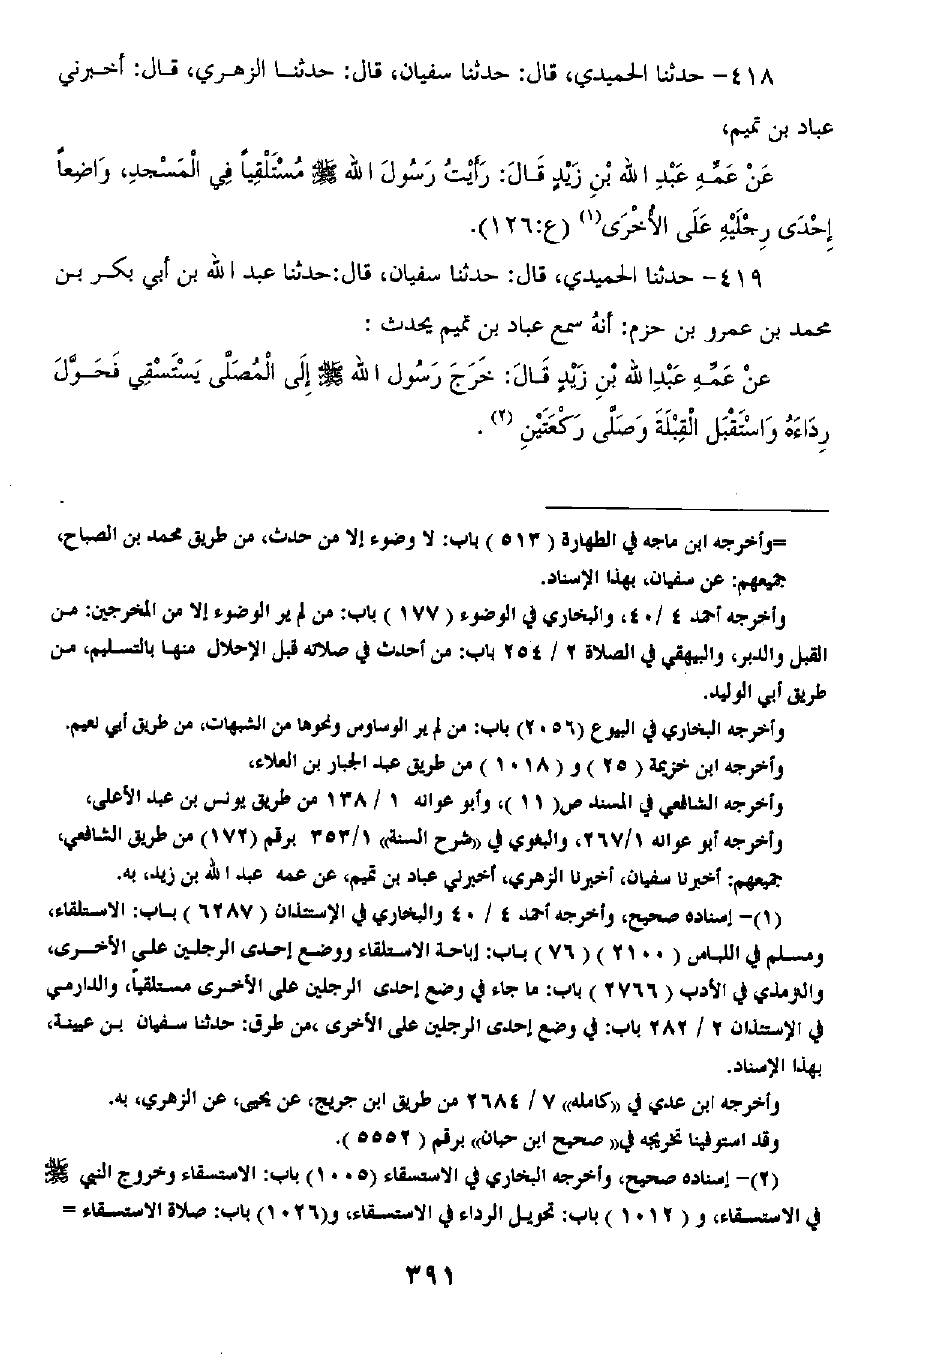 ٤١٨- حدثنا الحميدي، قال: حدثنا سفيان، قال: حدثنا الزهري، قال: أخبرني
عباد بن تميم،
عَنْ عَمِّهِ عَبْدِ اللهِ بْنِ زَيْدٍ قَالَ: رَأَيْتُ رَسُولَ اللهِ ﷺ مُسْتَلْقِياً فِي الْمَسْجِدِ، وَاضِعاً
إِحْدَى رِجْلَيْهِ عَلَى الأُخْرَى(١) (ع:١٢٦).
٤١٩- حدثنا الحميدي، قال: حدثنا سفيان، قال:حدثنا عبد الله بن أبي بكر بن
محمد بن عمرو بن حزم: أنهُ سمع عباد بن تميم يحدث :
عنْ عَمِّهِ عَبْدِاللهِ بْنِ زَيْدٍ قَالَ: خَرَجَ رَسُول اللهِ ﷺ إِلَى الْمُصَلَّى يَسْتَسْقِي فَحَوَّلَ
رِدَاءَهُ وَاسْتَقْبَلَ الْقِبْلَةَ وَصَلَّى رَكْعَتَيْنِ (٢) .
=وأخرجه ابن ماجه في الطهارة ( ٥١٣ ) باب: لا وضوء إلا من حدث، من طريق محمد بن الصباح،
جميعهم: عن سفيان، بهذا الإسناد.
وأخرجه أحمد ٤ /٤٠، والبخاري في الوضوء ( ١٧٧ ) باب: من لم ير الوضوء إلا من المخرجين: من
القبل والدبر، والبيهقي في الصلاة ٢ / ٢٥٤ باب: من أحدث في صلاته قبل الإحلال منها بالتسليم، من
طريق أبي الوليد.
وأخرجه البخاري في البيوع (٢٠٥٦) باب: من لم ير الوساوس ونحوها من الشبهات، من طريق أبي نعيم.
وأخرجه ابن خزيمة ( ٢٥ ) و ( ١٠١٨ ) من طريق عبد الجبار بن العلاء،
وأخرجه الشافعي في المسند ص( ١١ )، وأبو عوانه ١ / ١٣٨ من طريق يونس بن عبد الأعلى،
وأخرجه أبو عوانه ٢٦٧/١، والبغوي في «شرح السنة» ٣٥٣/١ برقم (١٧٢) من طريق الشافعي،
جميعهم: أخبرنا سفيان، أخبرنا الزهري، أخبرني عباد بن تميم، عن عمه عبد الله بن زيد، به.
(١)- إسناده صحيح، وأخرجه أحمد ٤ / ٤٠ والبخاري في الإستئذان ( ٦٢٨٧ ) باب: الاستلقاء،
ومسلم في اللباس ( ٢١٠٠ ) ( ٧٦ ) باب: إباحة الاستلقاء ووضع إحدى الرجلين على الأخرى،
والترمذي في الأدب ( ٢٧٦٦ ) باب: ما جاء في وضع إحدى الرجلين على الأخرى مستلقياً، والدارمي
في الإستئذان ٢ / ٢٨٢ باب: في وضع إحدى الرجلين على الأخرى ،من طرق: حدثنا سفيان بن عيينة،
بهذا الإسناد.
وأخرجه ابن عدي في «كامله» ٧ / ٢٦٨٤ من طريق ابن جريج، عن يحيى، عن الزهري، به.
وقد استوفينا تخريجه في« صحيح ابن حبان» برقم ( ٥٥٥٢ ).
(٢)- إسناده صحيح، وأخرجه البخاري في الاستسقاء (١٠٠٥) باب: الاستسقاء وخروج النبي ﷺ
في الاستسقاء، و ( ١٠١٢ ) باب: تحويل الرداء في الاستسقاء، و(١٠٢٦) باب: صلاة الاستسقاء =
٣٩١